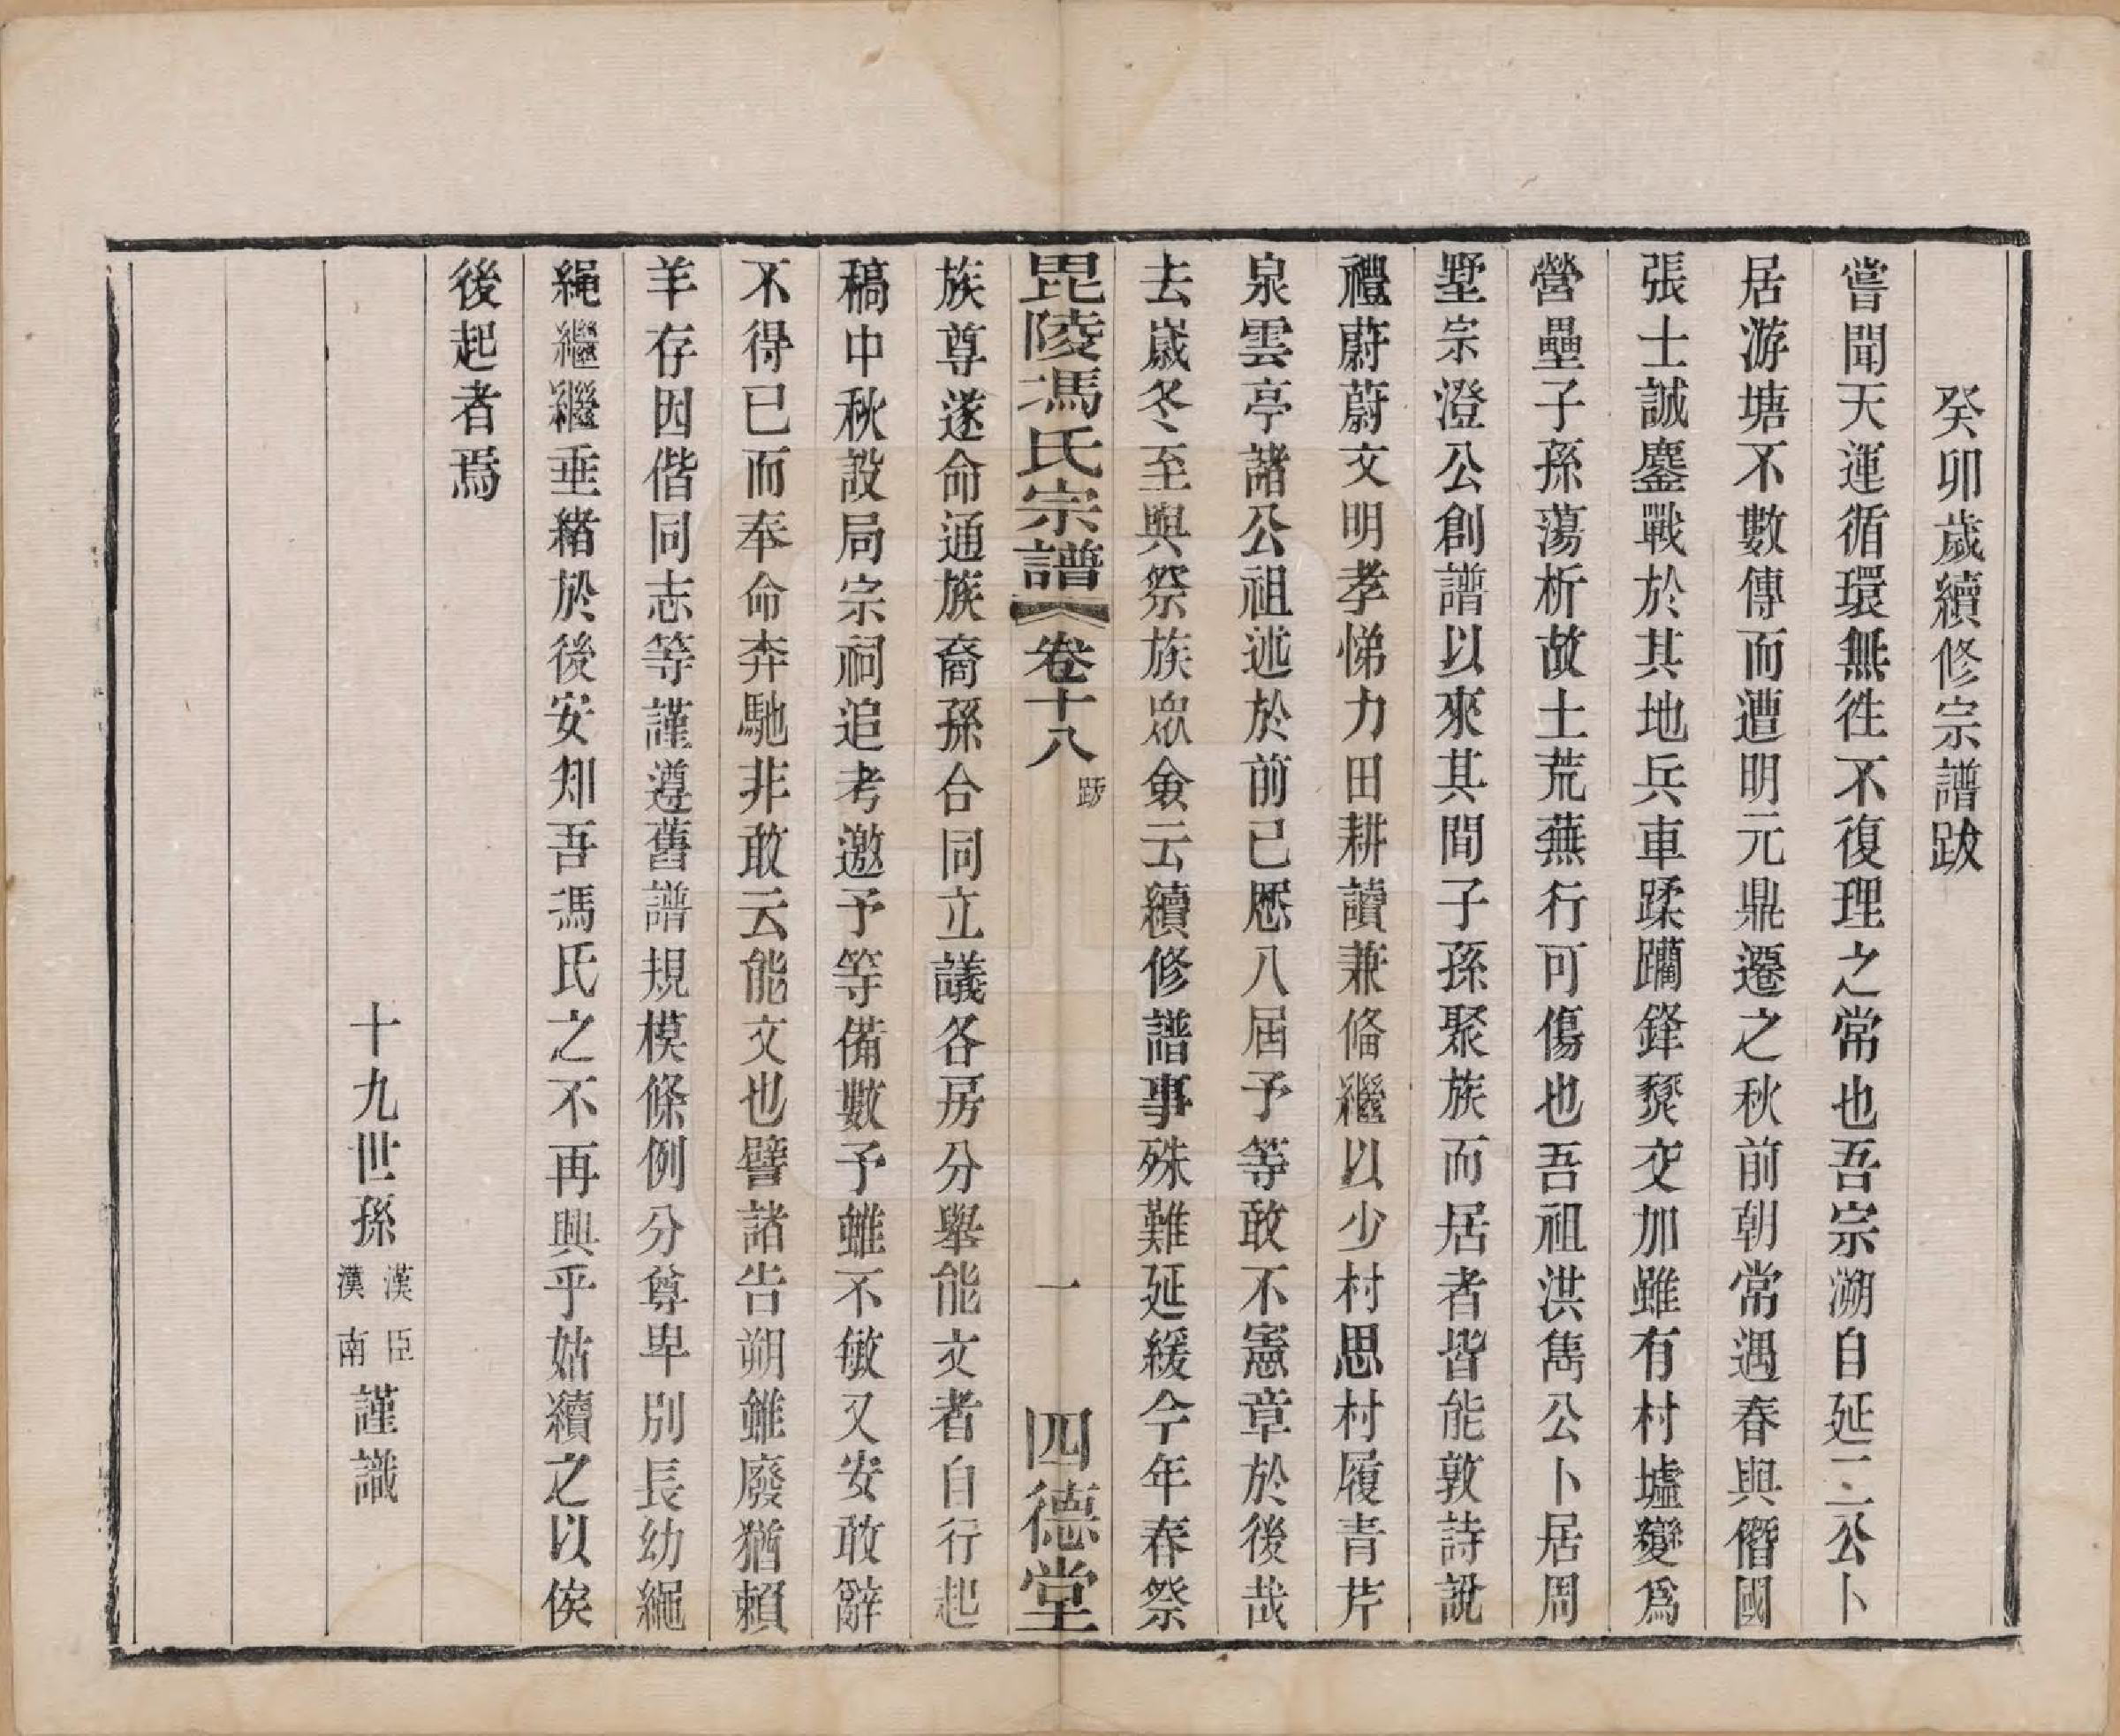 癸卯歲續修宗譜跋
嘗聞天運循環無徃不復理之常也吾宗溯自延二公卜
居游塘不數傳而遭明元鼎遷之秋前朝常遇春與僭國
張士誠鏖戰於其地兵車蹂躪鋒燹交加雖有村墟變爲
營壘子孫蕩析故土荒蕪行可傷也吾祖洪雋公卜居周
墅宗澄公創譜以來其間子孫聚族而居者皆能敦詩說
禮蔚蔚文明孝悌力田耕讀兼俻繼以少村思村履青芹
泉雲亭諸公祖述於前已厯八届予等敢不憲章於後哉
去嵗冬至與祭族眾僉云續修譜事殊難延緩今年春祭
毘陵馮氏宗譜 卷十八 跋 一 四德堂
族尊遂命通族裔孫合同立議各房分舉能文者自行起
稿中秋設局宗祠追考邀予等備數予雖不敏又安敢辭
不得已而奉命奔馳非敢云能文也譬諸告朔雖廢猶賴
羊存因偕同志等謹遵舊譜規模條例分尊卑別長幼繩
繩繼繼垂緒於後安知吾馮氏之不再興乎姑續之以俟
後起者焉
十九世孫 漢臣 漢南 謹識